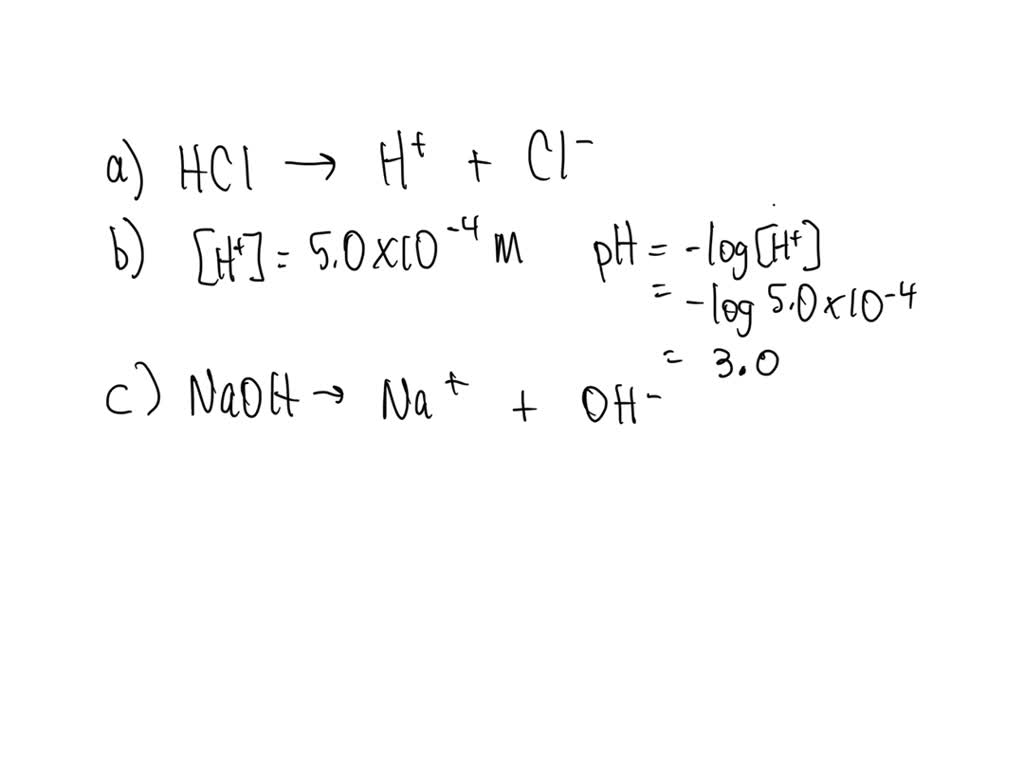 a) HCl → H⁺ + Cl⁻
b) [H⁺] = 5.0×10⁻⁴ M pH = -log[H⁺]
= -log 5.0×10⁻⁴
= 3.0
c) NaOH → Na⁺ + OH⁻